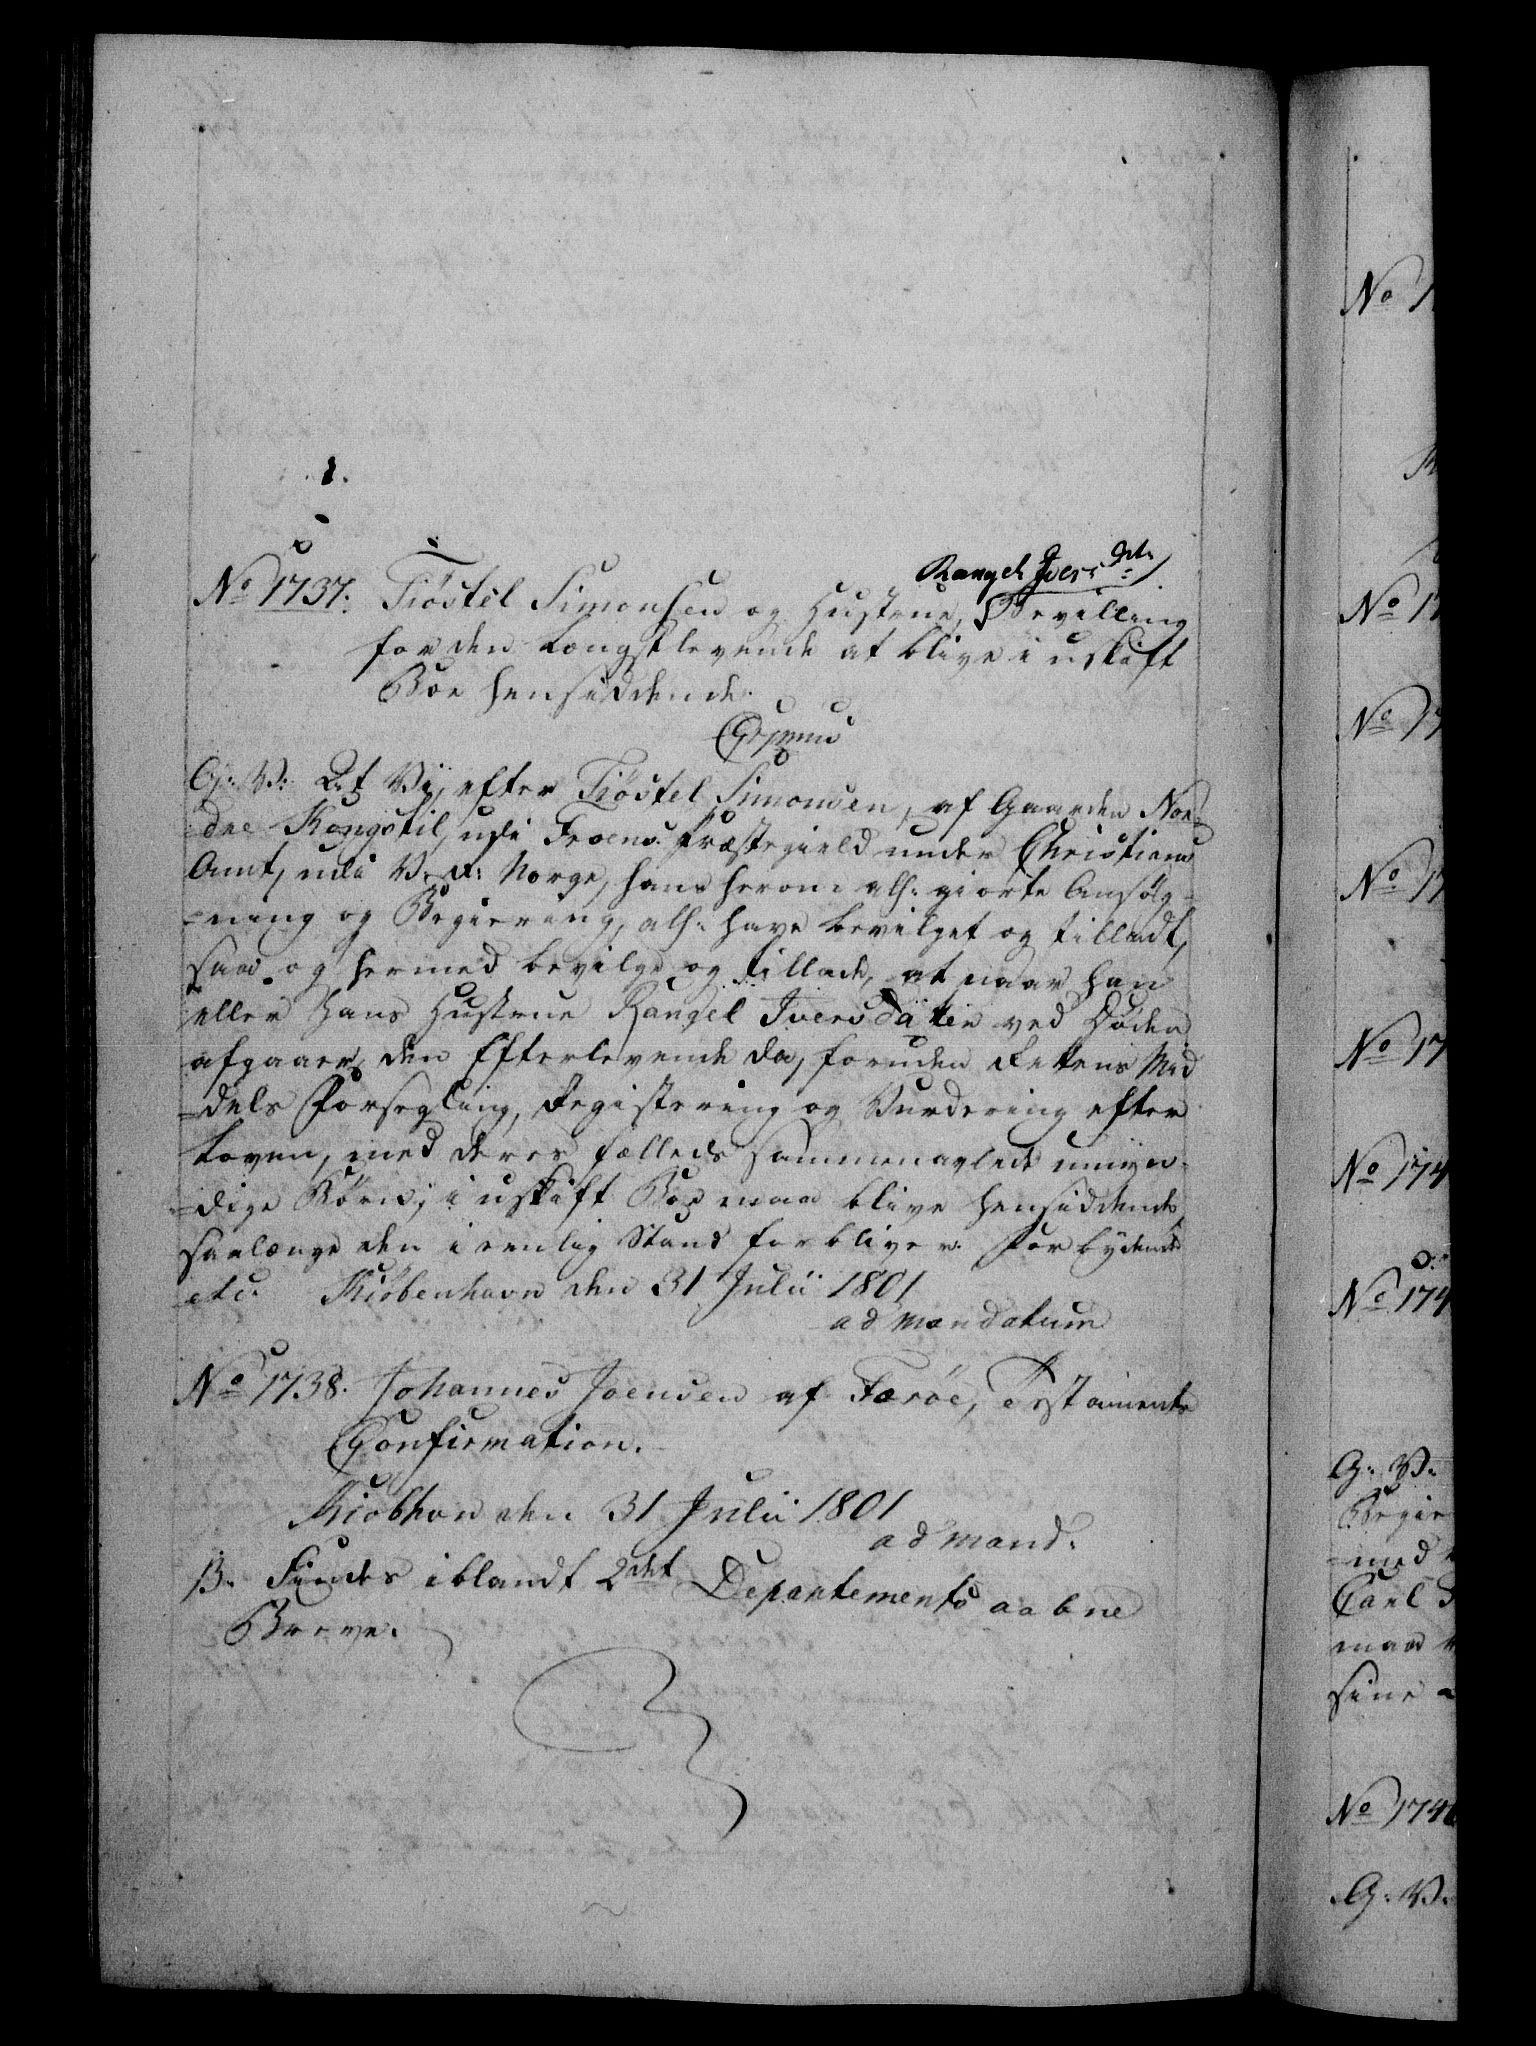 1.
Rangel Iversdt:
No 1737. Tiøstel Simonsen og Hustrue, Bevilling
for den Længstlevende at blive i uskift
Boe hensiddende.
Gr
G: V: At Vi, efter Tiøstel Simonsen, af Gaarden Nor-
dre Kongstil, udi Froens Præstegield under Christians
Amt, udi V. R: Norge, hans herom alh: giorte Ansøg-
-ning og Begiering, alh: have bevilget og tilladt,
saa og hermed bevilge og tillade, at naar han
eller hans Hustrue Rangel Iversdatter ved Døden
afgaaer, den Efterlevende da, foruden Rettens Mid-
-dels Forsegling, Registering og Vurdering efter
Loven, med deres fælleds sammenavlede umyn-
-dige Børn, i uskift Boe maa blive hensiddende,
saalænge den i eenlig Stand forbliver. Forbydende
etc. Kiøbenhavn den 31 Julii 1801
ad mandatum
No 1738. Johannes Joensen af Færøe, Testaments
Confirmation.
Kiøbhvn den 31 Julii 1801
ad mand:
B. Findes iblandt 2det Departements aabne
Breve.
No 1
No 17
No 17
No 17
No 17
No 174
No 174
G: V:
Begie
-med
Carl
maa
sine
No 174
G: V: